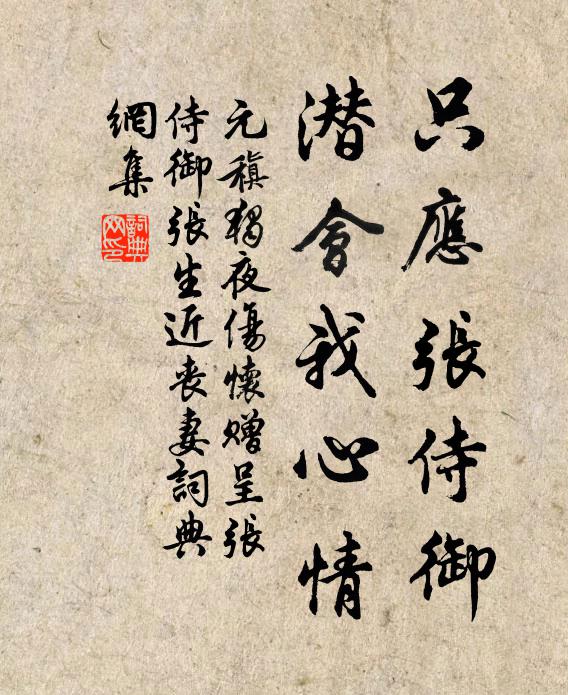 只應張侍御
潛會我心情
元稹獨夜傷懷贈呈張
侍御張生近喪妻詞典
網集
詞典
网印